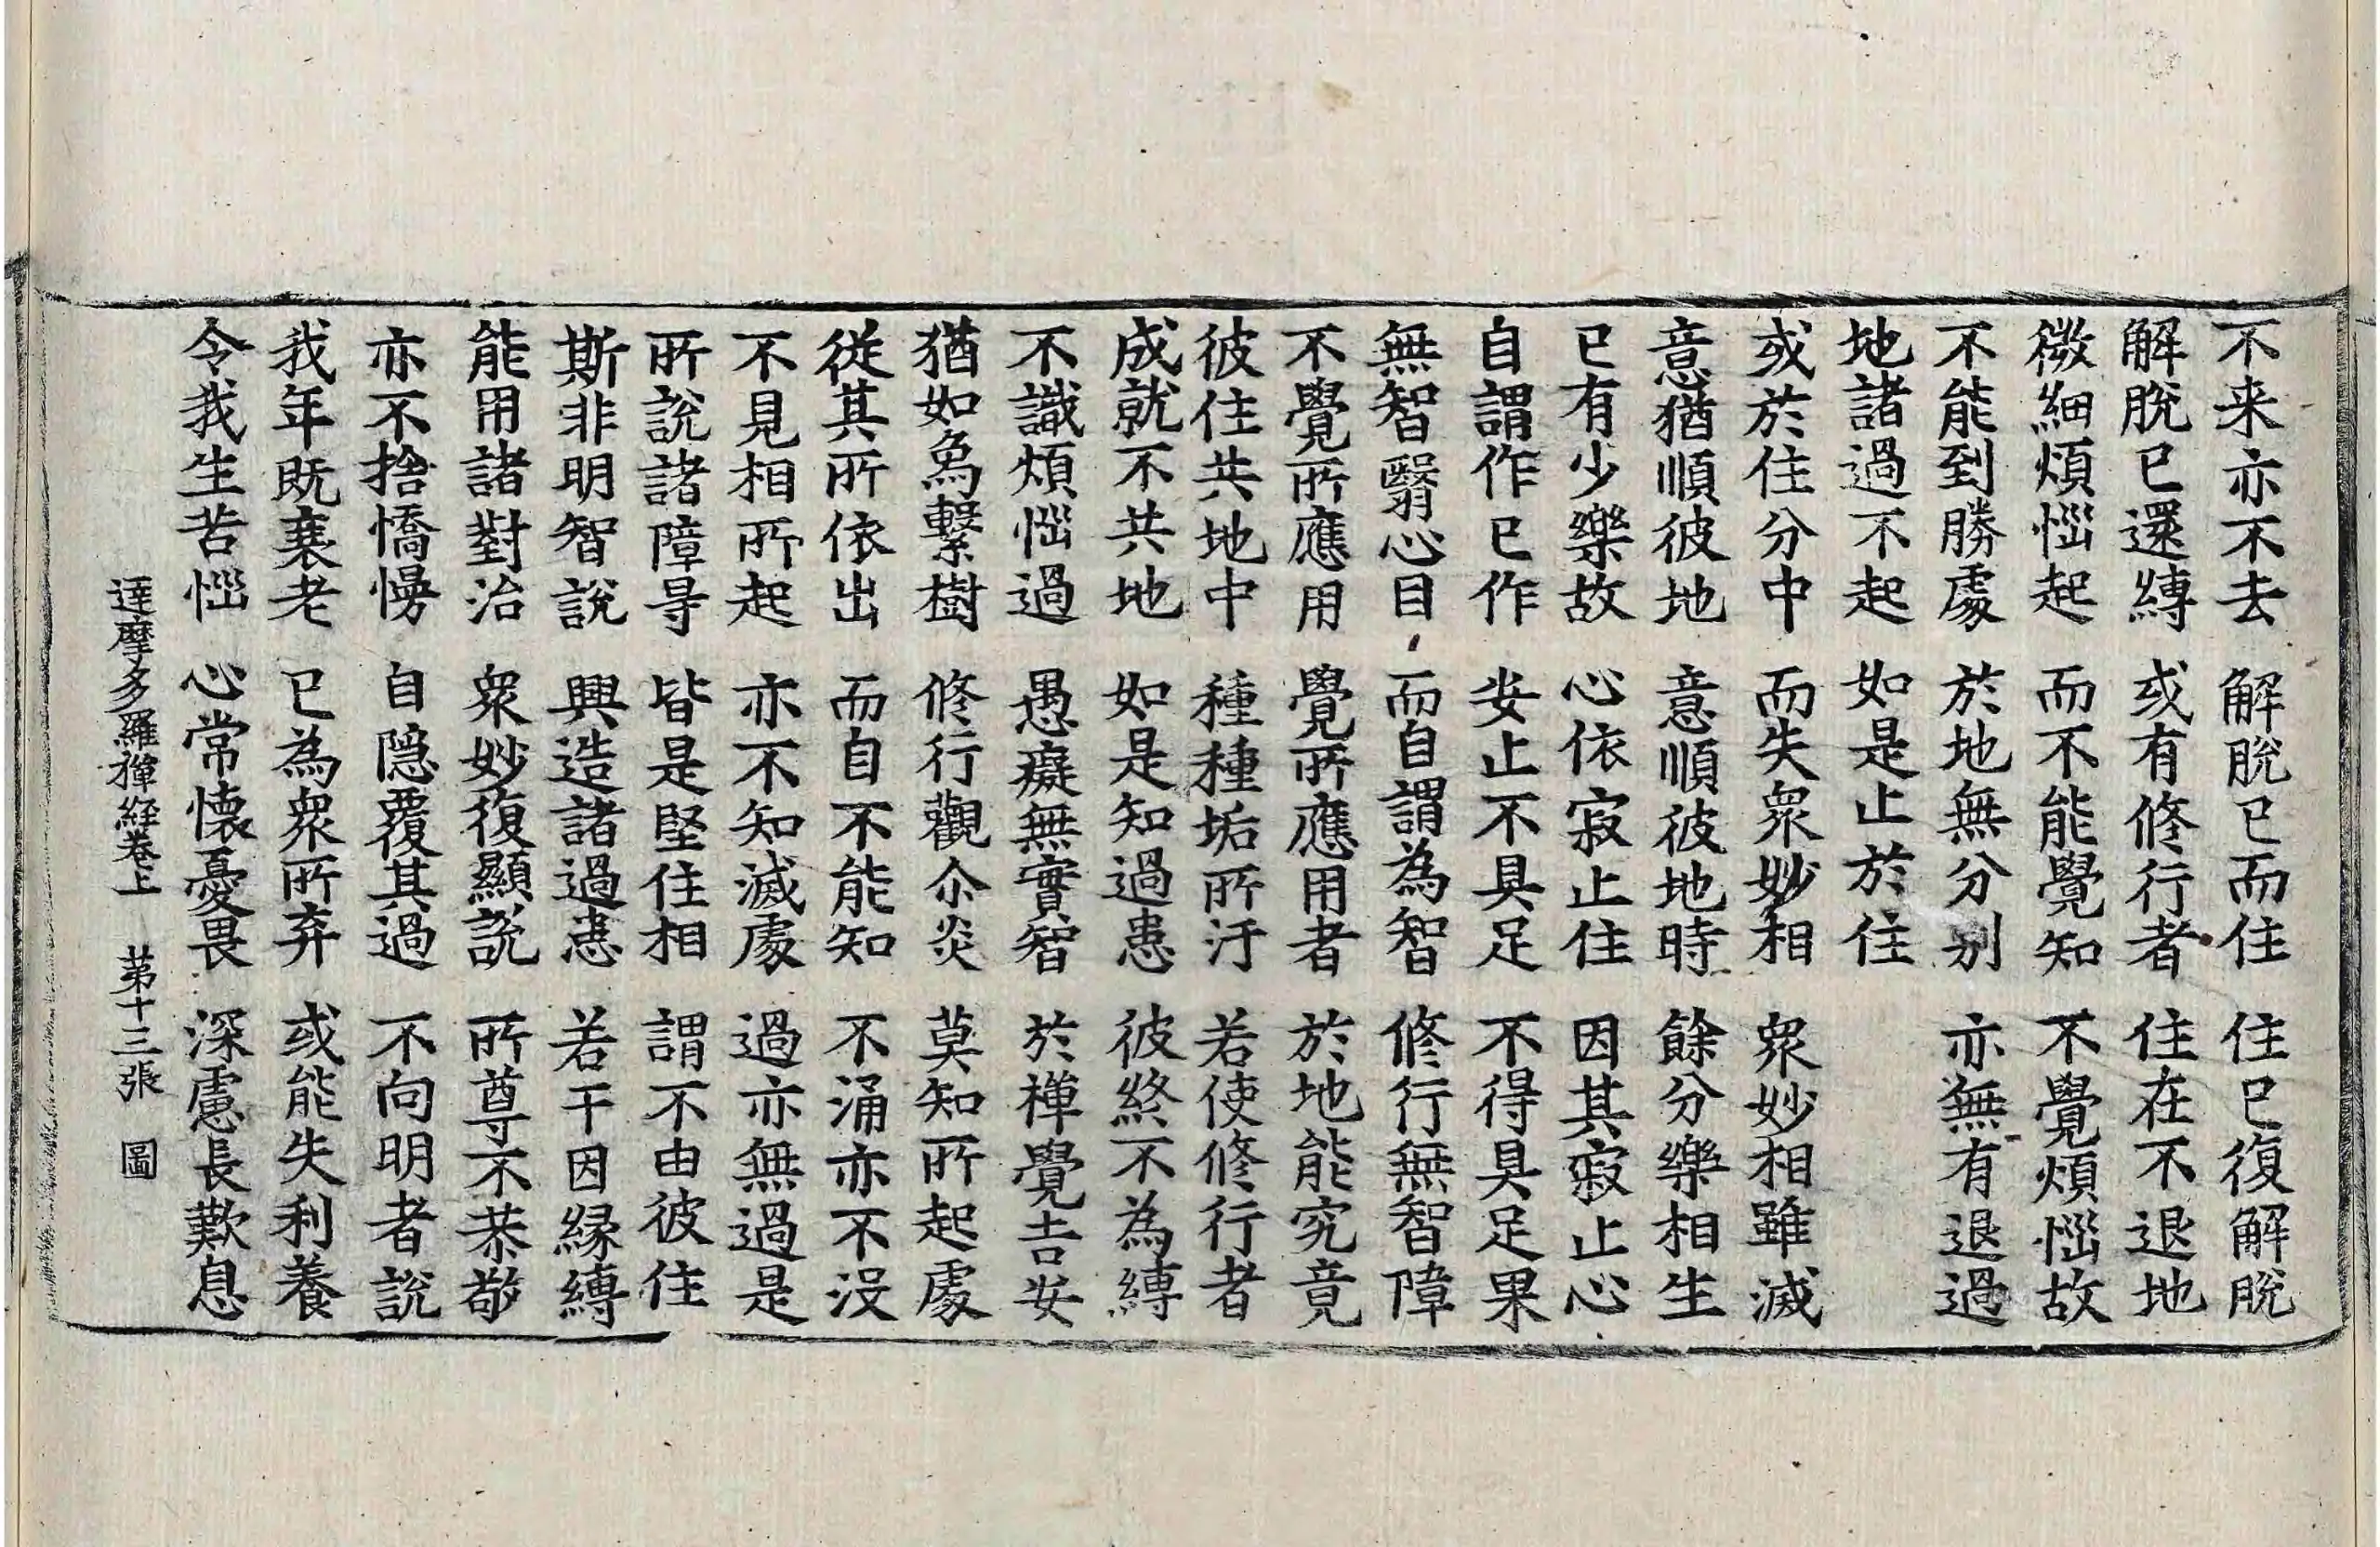 不来亦不去 解脫已而住 住已復解脫
解脫已還縛 或有修行者 住在不退地
微細煩惱起 而不能覺知 不覺煩惱故
不能到勝處 於地無分別 亦無有退過
地諸過不起 如是止於住
或於住分中 而失衆妙相 衆妙相雖滅
意猶順彼地 意順彼地時 餘分樂相生
已有少樂故 心依寂止住 因其寂止心
自謂作已作 安止不具足 不得具足果
無智翳心目 而自謂為智 修行無智障
不覺所應用 覺所應用者 於地能究竟
彼住共地中 種種垢所汙 若使修行者
成就不共地 如是知過患 彼終不為縛
不識煩惱過 愚癡無實智 於禪覺吉安
猶如象繫樹 修行觀尒炎 莫知所起處
從其所依出 而自不能知 不涌亦不没
不見相所起 亦不知滅處 過亦無過是
所說諸障㝵 皆是堅住相 謂不由彼住
斯非明智說 興造諸過患 若干因縁縛
能用諸對治 衆妙復顯說 所尊不恭敬
亦不捨憍慢 自隱覆其過 不向明者說
我年既衰老 已為衆所弃 或能失利養
令我生苦惱 心常懷憂畏 深慮長歎息
達摩多羅禪経卷上 第十三張 圖